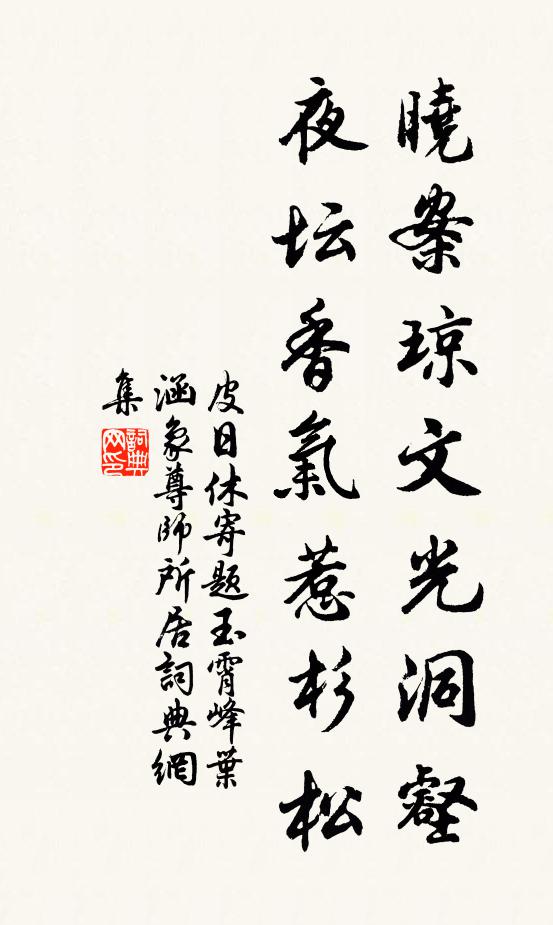 曉案琼文光洞壑
夜坛香氣惹杉松
皮日休寄题玉霄峰葉
涵象尊師所居詞典網
集
詞典
网印